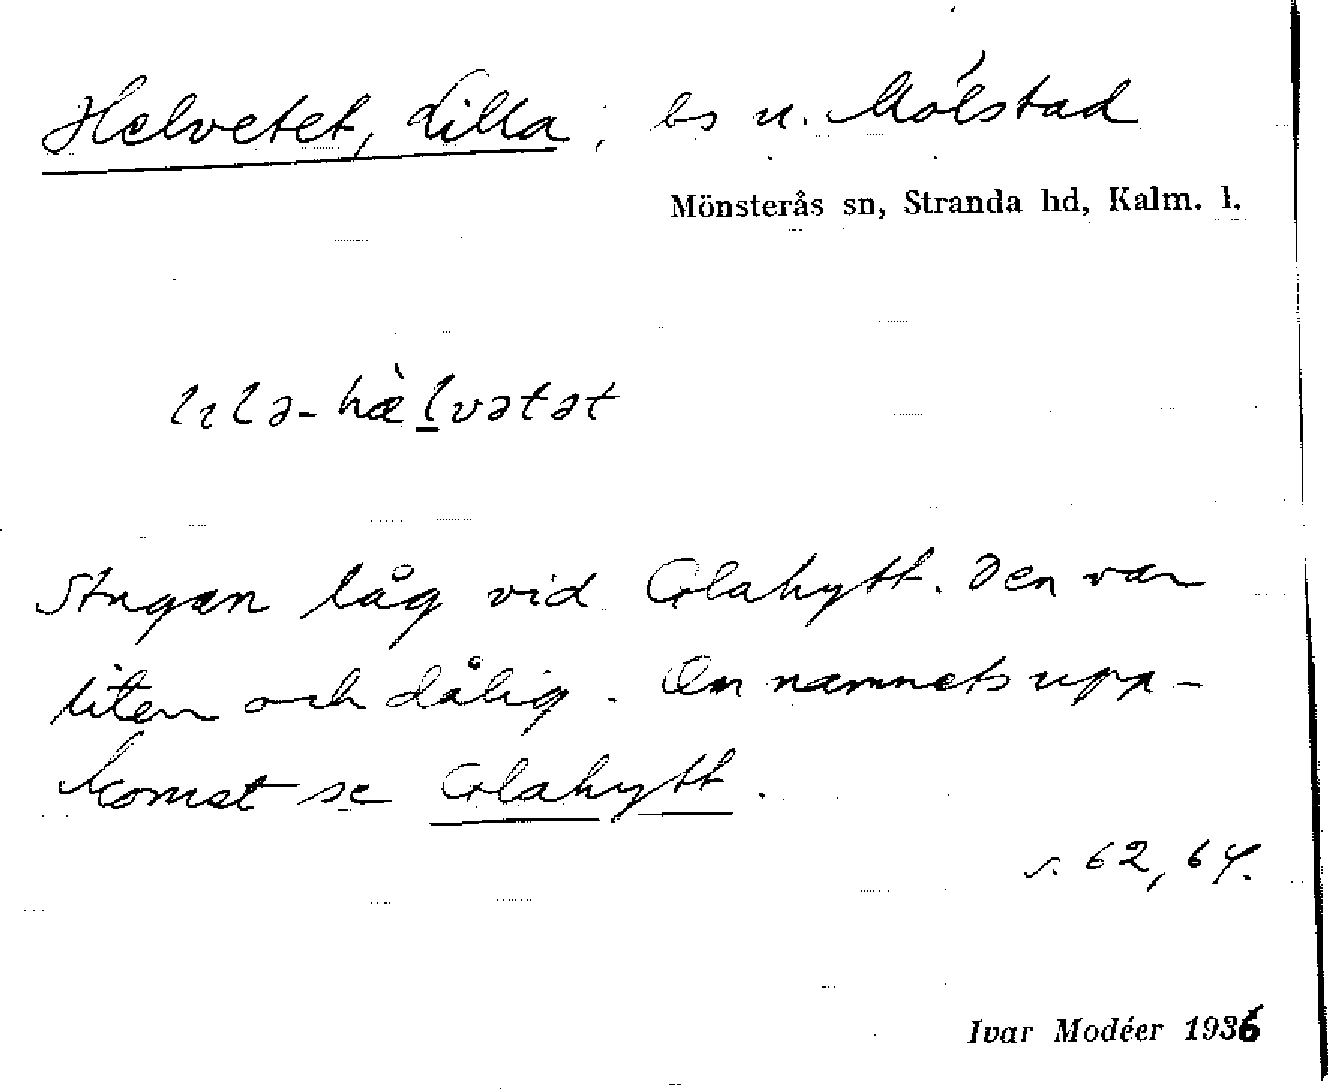 Helvetet, Lilla; bs u. Mölstad
Mönsterås sn, Stranda hd, Kalm. l.
lɩlə-hæ̀lvətət
Stugan låg vid Colahytt. Den var
liten och dålig. Om namnets upp-
komst se Colahytt.
s. 62, 64.
Ivar Modéer 1936